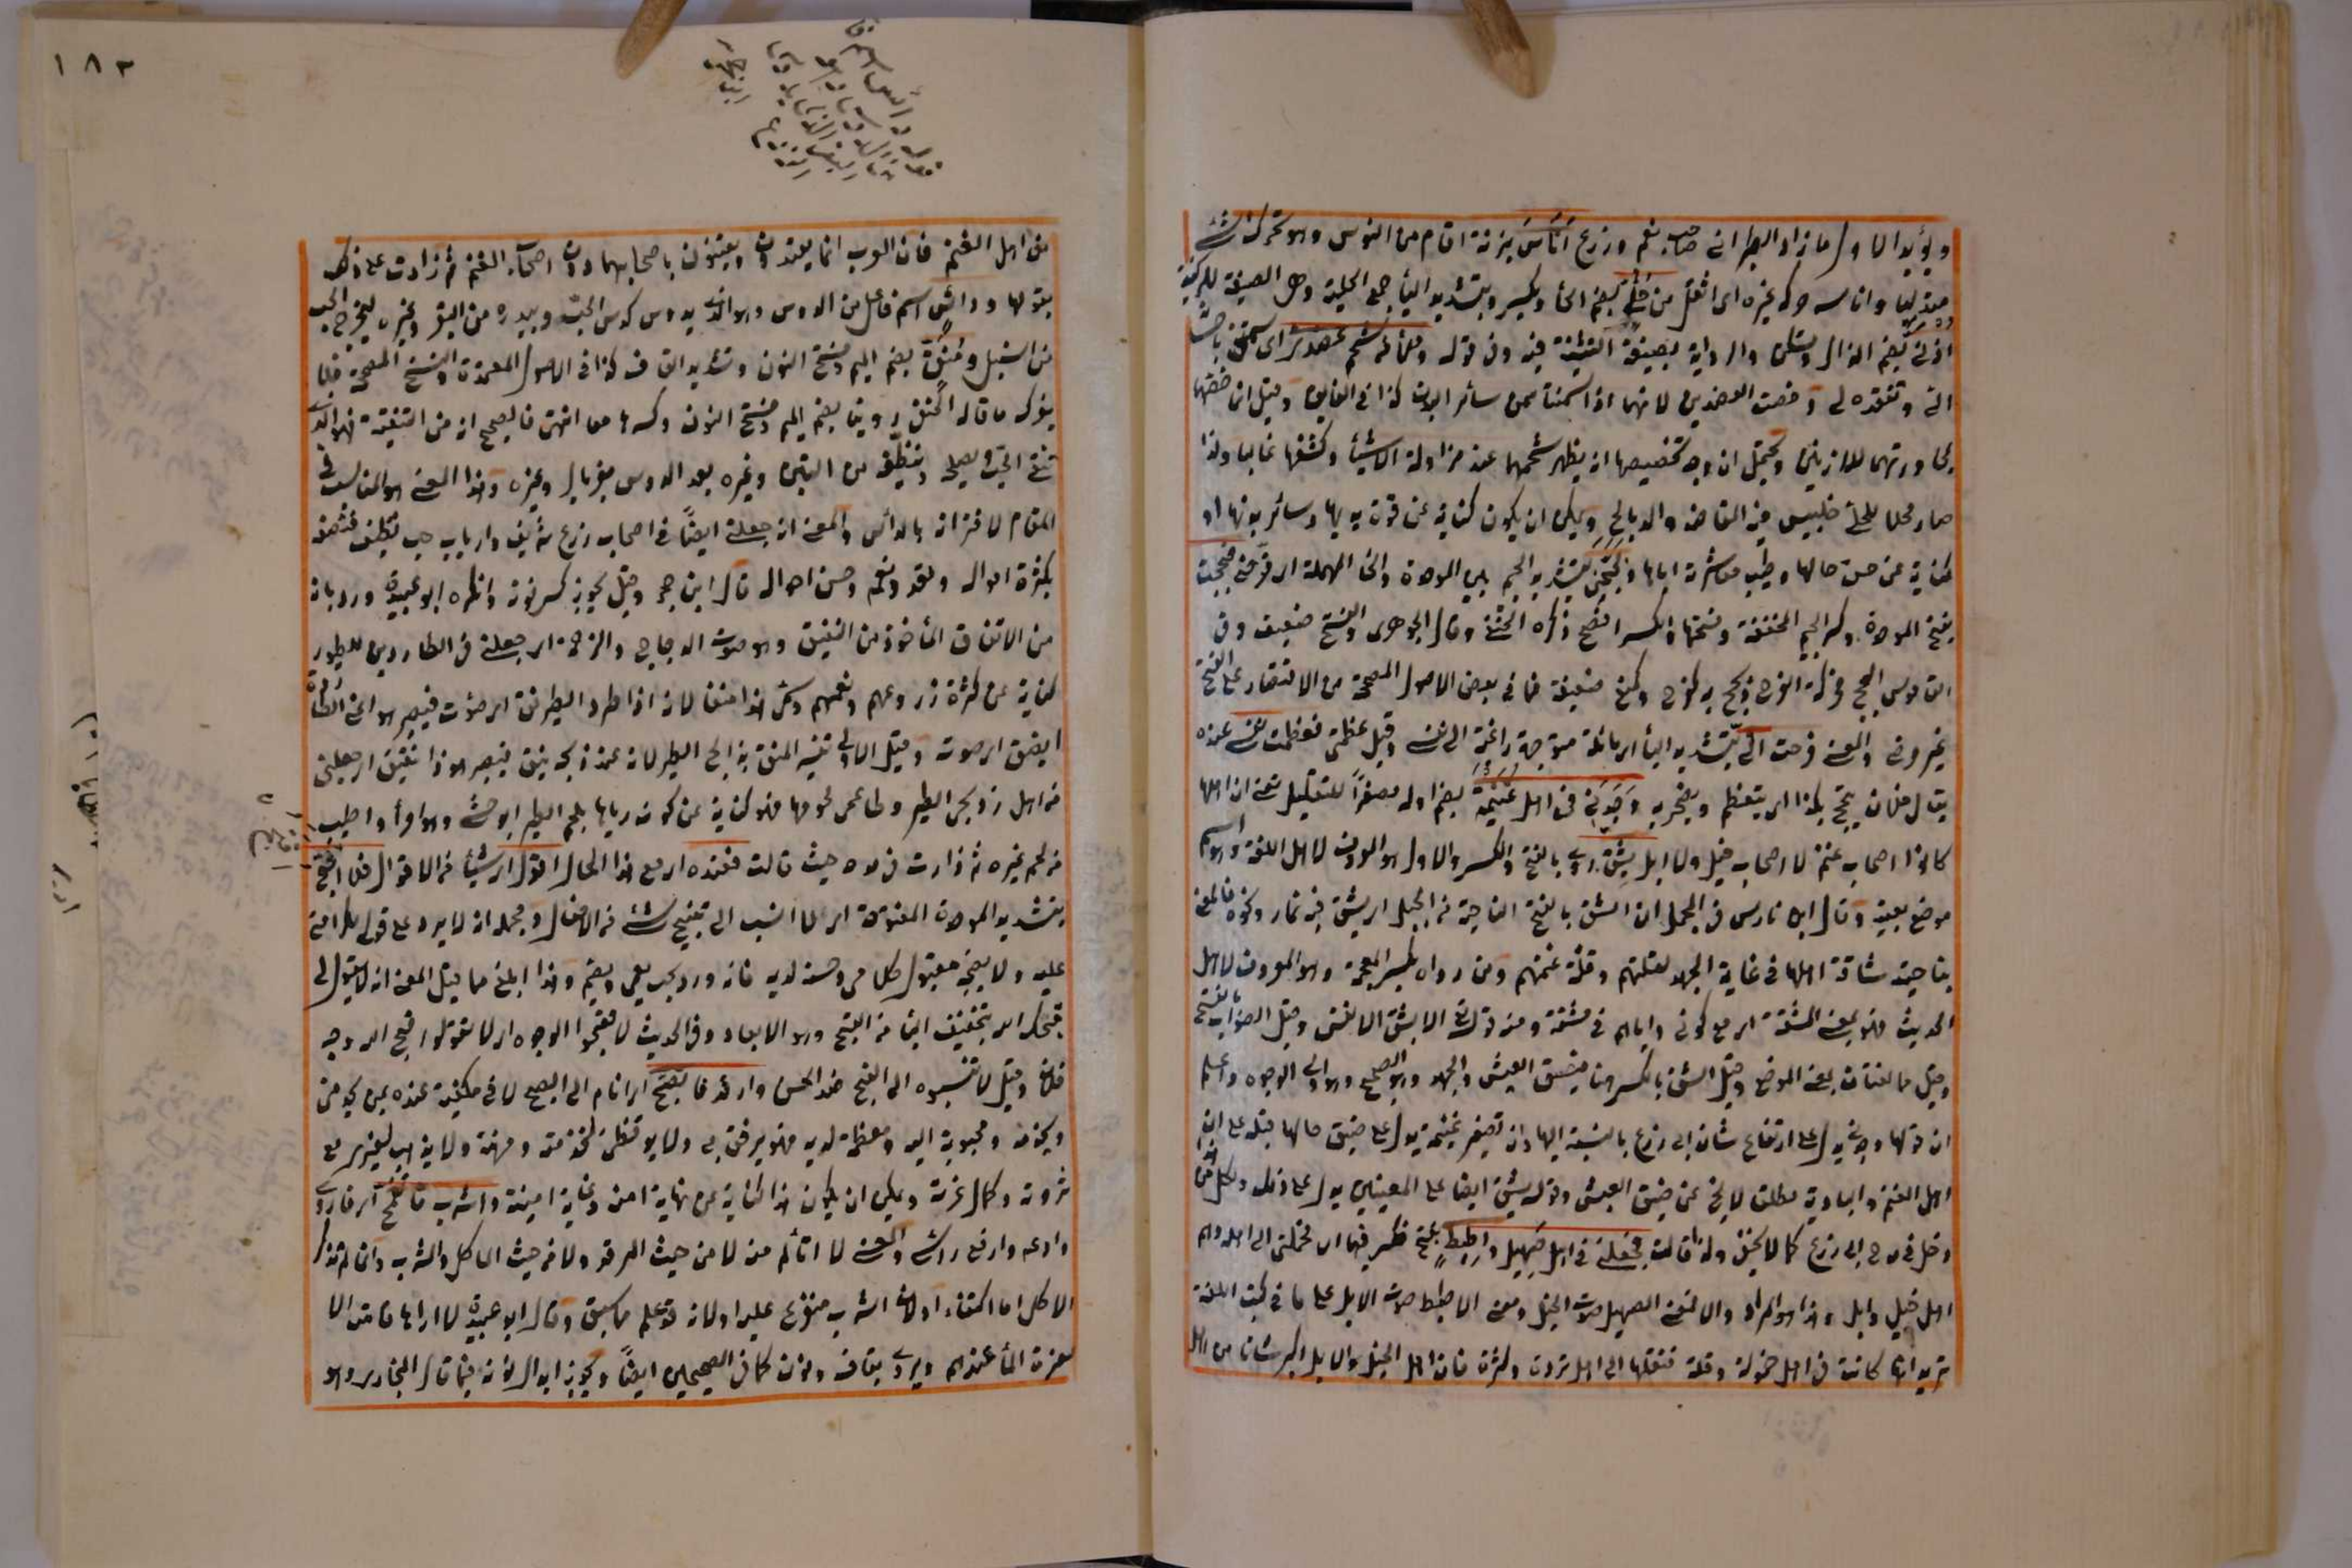 ويؤيد الاول ما زاد الطبراني صاحب نعم وزرع اناس بزنة اقام من النوس وهو تحرك شئ
متدليا واناسه حركه غيره اى اثقل من حلى بضم الحاء ويكسر وبتشديد الياء جمع الحلية وهى الصيغة للزينة
اذنى بضم الذال ويسكن والرواية بصيغة التثنية فيه وفى قوله وملأ من شحم عضدى اى سمننى باحسانه
الى وتفقده لى وخصت العضدين لانهما اذا سمنتا سمن سائر البدن كذا فى الفايق وقيل انما خصتهما
لمجاورتهما للاذنين ويحتمل ان وجه تخصيصهما انه يظهر شحمهما عند مزاولة الاشياء وكشفها غالبا ولذا
صار محلا للحلى فيلبس فيه المعاضد والدمالج ويمكن ان يكون كناية عن قوة يديها وسائر بدنها او
كناية عن حسن حالها وطيب معاشرته اياها وبجحنى بتشديد الجيم بين الموحدة والحاء المهملة اى فرحنى فبجحت
بفتح الموحدة وكسر الجيم المخففة وفتحها والكسر افصح ذكره الحنفى وقال الجوهرى والفتح ضعيف وفى
القاموس البجح محركة الفرح وبجح به كفرح وكمنع ضعيفة فما فى بعض الاصول المصححة من الاقتصار على الفتح
غير مرضى والمعنى فرحت الى بتشديد الياء اى مائلة متوجهة راغبة الى نفسى وقيل عظمنى فعظمت نفسى عنده
يقال فلان يتبجح بكذا اى يتعظم ويفخر به وجدنى فى اهل غنيمة بضم اوله مصغرا للتقليل تعنى ان اهلها
كانوا اصحاب غنم لا اصحاب خيل ولا ابل بشق روى بالفتح والكسر والاول هو المعروف لاهل اللغة وهو اسم
موضع بعينه وقال ابن فارس فى المجمل ان الشق بالفتح الناحية من الجبل اى بشق فيه غار ونحوه فالمعنى
بناحية شاقة اهلها فى غاية الجهد لقلتهم وقلة غنمهم ومن رواه بكسر المعجمة وهو المعروف لاهل
الحديث فهو بمعنى المشقة اى مع كونى واياهم فى مشقة ومنه قوله تعالى الا بشق الانفس وقيل الصواب بالفتح
وقيل هما لغتان بمعنى الموضع وقيل الشق بالكسر هنا ضيق العيش والجهد وهو الصحيح وهو اولى الوجوه واعلم
ان قولها وجدنى يدل على ارتفاع شان ابى زرع بالنسبة اليها وان تصغير غنيمة يدل على ضيق حالها قبله على ان
اهل الغنم والبادية مطلق لا يخلو عن ضيق العيش وقوله بشق ايضا على المعنيين يدل على ذلك ولكل
دخل فى مدح ابى زرع كما لا يخفى ولذا قالت فجعلنى فى اهل صهيل واطيط بفتح فكسر فيهما اى فحملنى الى اهله وهم
اهل خيل وابل هذا هو المراد والا فمعنى الصهيل صوت الخيل ومعنى الاطيط صوت الابل على ما فى كتب اللغة
تريد انها كانت فى اهل خمولة وقلة فنقلها الى اهل ثروة وكثرة فان اهل الخيل والابل اكبر شانا من اهل
١٨٢
من اهل الغنم فان العرب انما يعتدون ويعتنون باصحابهما دون اصحاب الغنم ثم زادت على ذلك
بقولها ودائس اسم فاعل من الدوس وهو الذى يدوس كدس الحب ويبدره من البقر وغيره ليخرج الحب
من السنبل ومنق بضم الميم وفتح النون وتشديد القاف كذا فى الاصول المعتمدة والنسخ المصححة فلا
يغرك ما قاله الحنفى روينا بضم الميم وفتح النون وكسرها معا انتهى فالصحيح انه من التنقية فهو الذى
ينقى الحب ويصلح وينظف من التبن وغيره بعد الدوس بغربال وغيره وهذا المعنى هو المناسب فى
المقام لاقترانه بالدائس والمعنى انه جعلنى ايضا فى اصحاب زرع شريف وارباب حب نظيف فتصفه
بكثرة امواله وتعدد نعمه وحسن احواله قال ابن حجر وقيل يجوز كسر نونه وانكره ابو عبيد ورد بانه
من الانقاق المأخوذ من النقيق وهو صوت الدجاج والرخمة اى جعلنى فى الطاردين للطيور
كناية عن كثرة زروعهم ونعمهم وسمى هذا منقا لانه اذا طرد الطير نق اى صوت فيصير هو اى الطارد
ذا نقيق اى صوت وقيل الاولى تفسير المنق بذابح الطير لانه عند ذبحه ينق فيصير هو ذا نقيق اى جعلنى
من اهل ذوابح الطير وطاعمى لحومها فهو كناية عن كونه رباها بلحم الطير الوحشى وهو امرأ واطيب
من لحم غيره ثم زادت فى مدحه حيث قالت فعنده اى مع هذا الحال اقول اى شيئا من الاقوال فلا اقبح
بتشديد الموحدة المفتوحة اى لا انسب الى تقبيح شئ من الافعال ومجمله انه لا يرد على قولى لكرامتى
عليه ولا يقبح معقول كلامى وحسنه لديه فانه ورد حبك الشئ يعمى ويصم وهذا ابلغ مما قيل المعنى انه لا يقول لى
قبحك الله بتخفيف الباء من القبح وهو الابعاد وفى الحديث لا تقبحوا الوجوه اى لا تقولوا قبح الله وجه
فلان وقيل لا تنسبوه الى القبح ضد الحسن وارقد فاتصبح اى انام الى الصبح لانى مكفية عنده بمن يخدمنى
ويخدمه ومحبوبة اليه ومعظمة لديه فهو يرفق بى ولا يوقظنى لخدمته ومهنته ولا يذهب لغيرى مع
ثروته وكمال عزته ويمكن ان يكون هذا كناية عن نهاية امنه وغاية امنيته واشرب فاتقمح اى فاروى
وادعه وارفع رأسى والمعنى لا اتألم منه لا من حيث المرقد ولا من حيث الماكل والمشرب وانما لم تذكر
الاكل اما اكتفاء اولان الشرب متفرع عليه اولانه قد علم مما سبق وقال ابو عبيد لا اراها قالت الا
لعزة الماء عندهم ويروى بقاف ونون كما فى الصحيحين ايضا ويجوز ابدال نونه ميما قال البخارى وهو